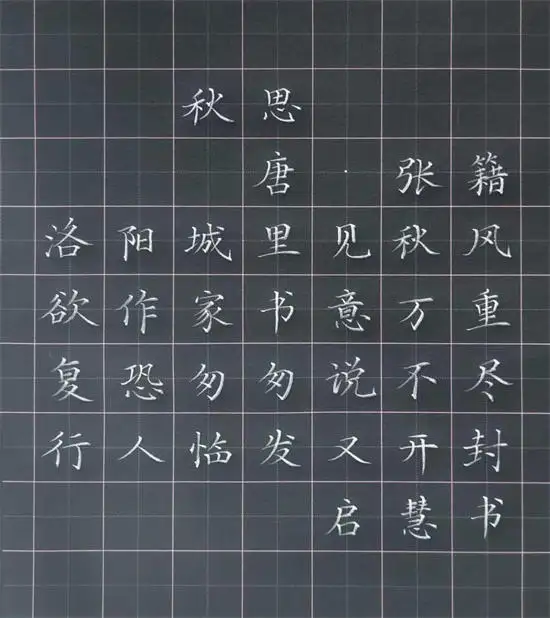 秋思
唐·张籍
洛阳城里见秋风
欲作家书意万重
复恐匆匆说不尽
行人临发又开封
启慧书